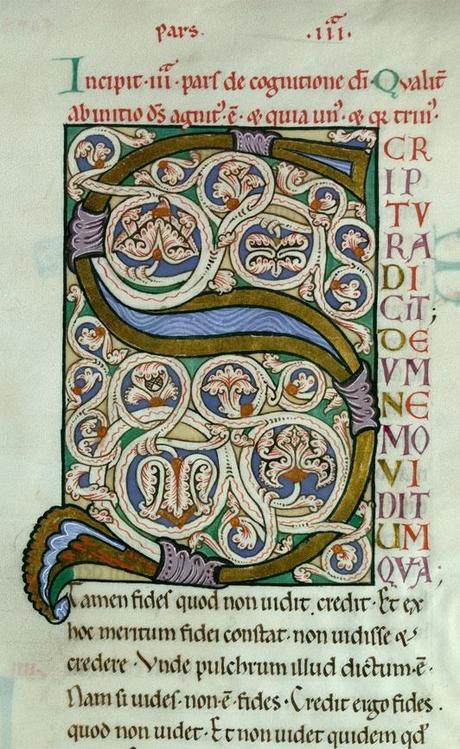 pars. .iii.
Incipit .iii. pars de cognitione di. Qualit
ab initio ds agnit' ē. & quia un'. & qr trin'.
S
CR
IP
TV
RA
DI
CIT;
DE
VM
NE
MO
VI
DIT
UM
QVA;
Tamen fides quod non uidit, credit. Et ex
hoc meritum fidei constat. non uidisse &
credere. Vnde pulchrum illud dictum ē.
Nam si uides. non ē fides. Credit ergo fides.
quod non uidet. Et non uidet quidem qd